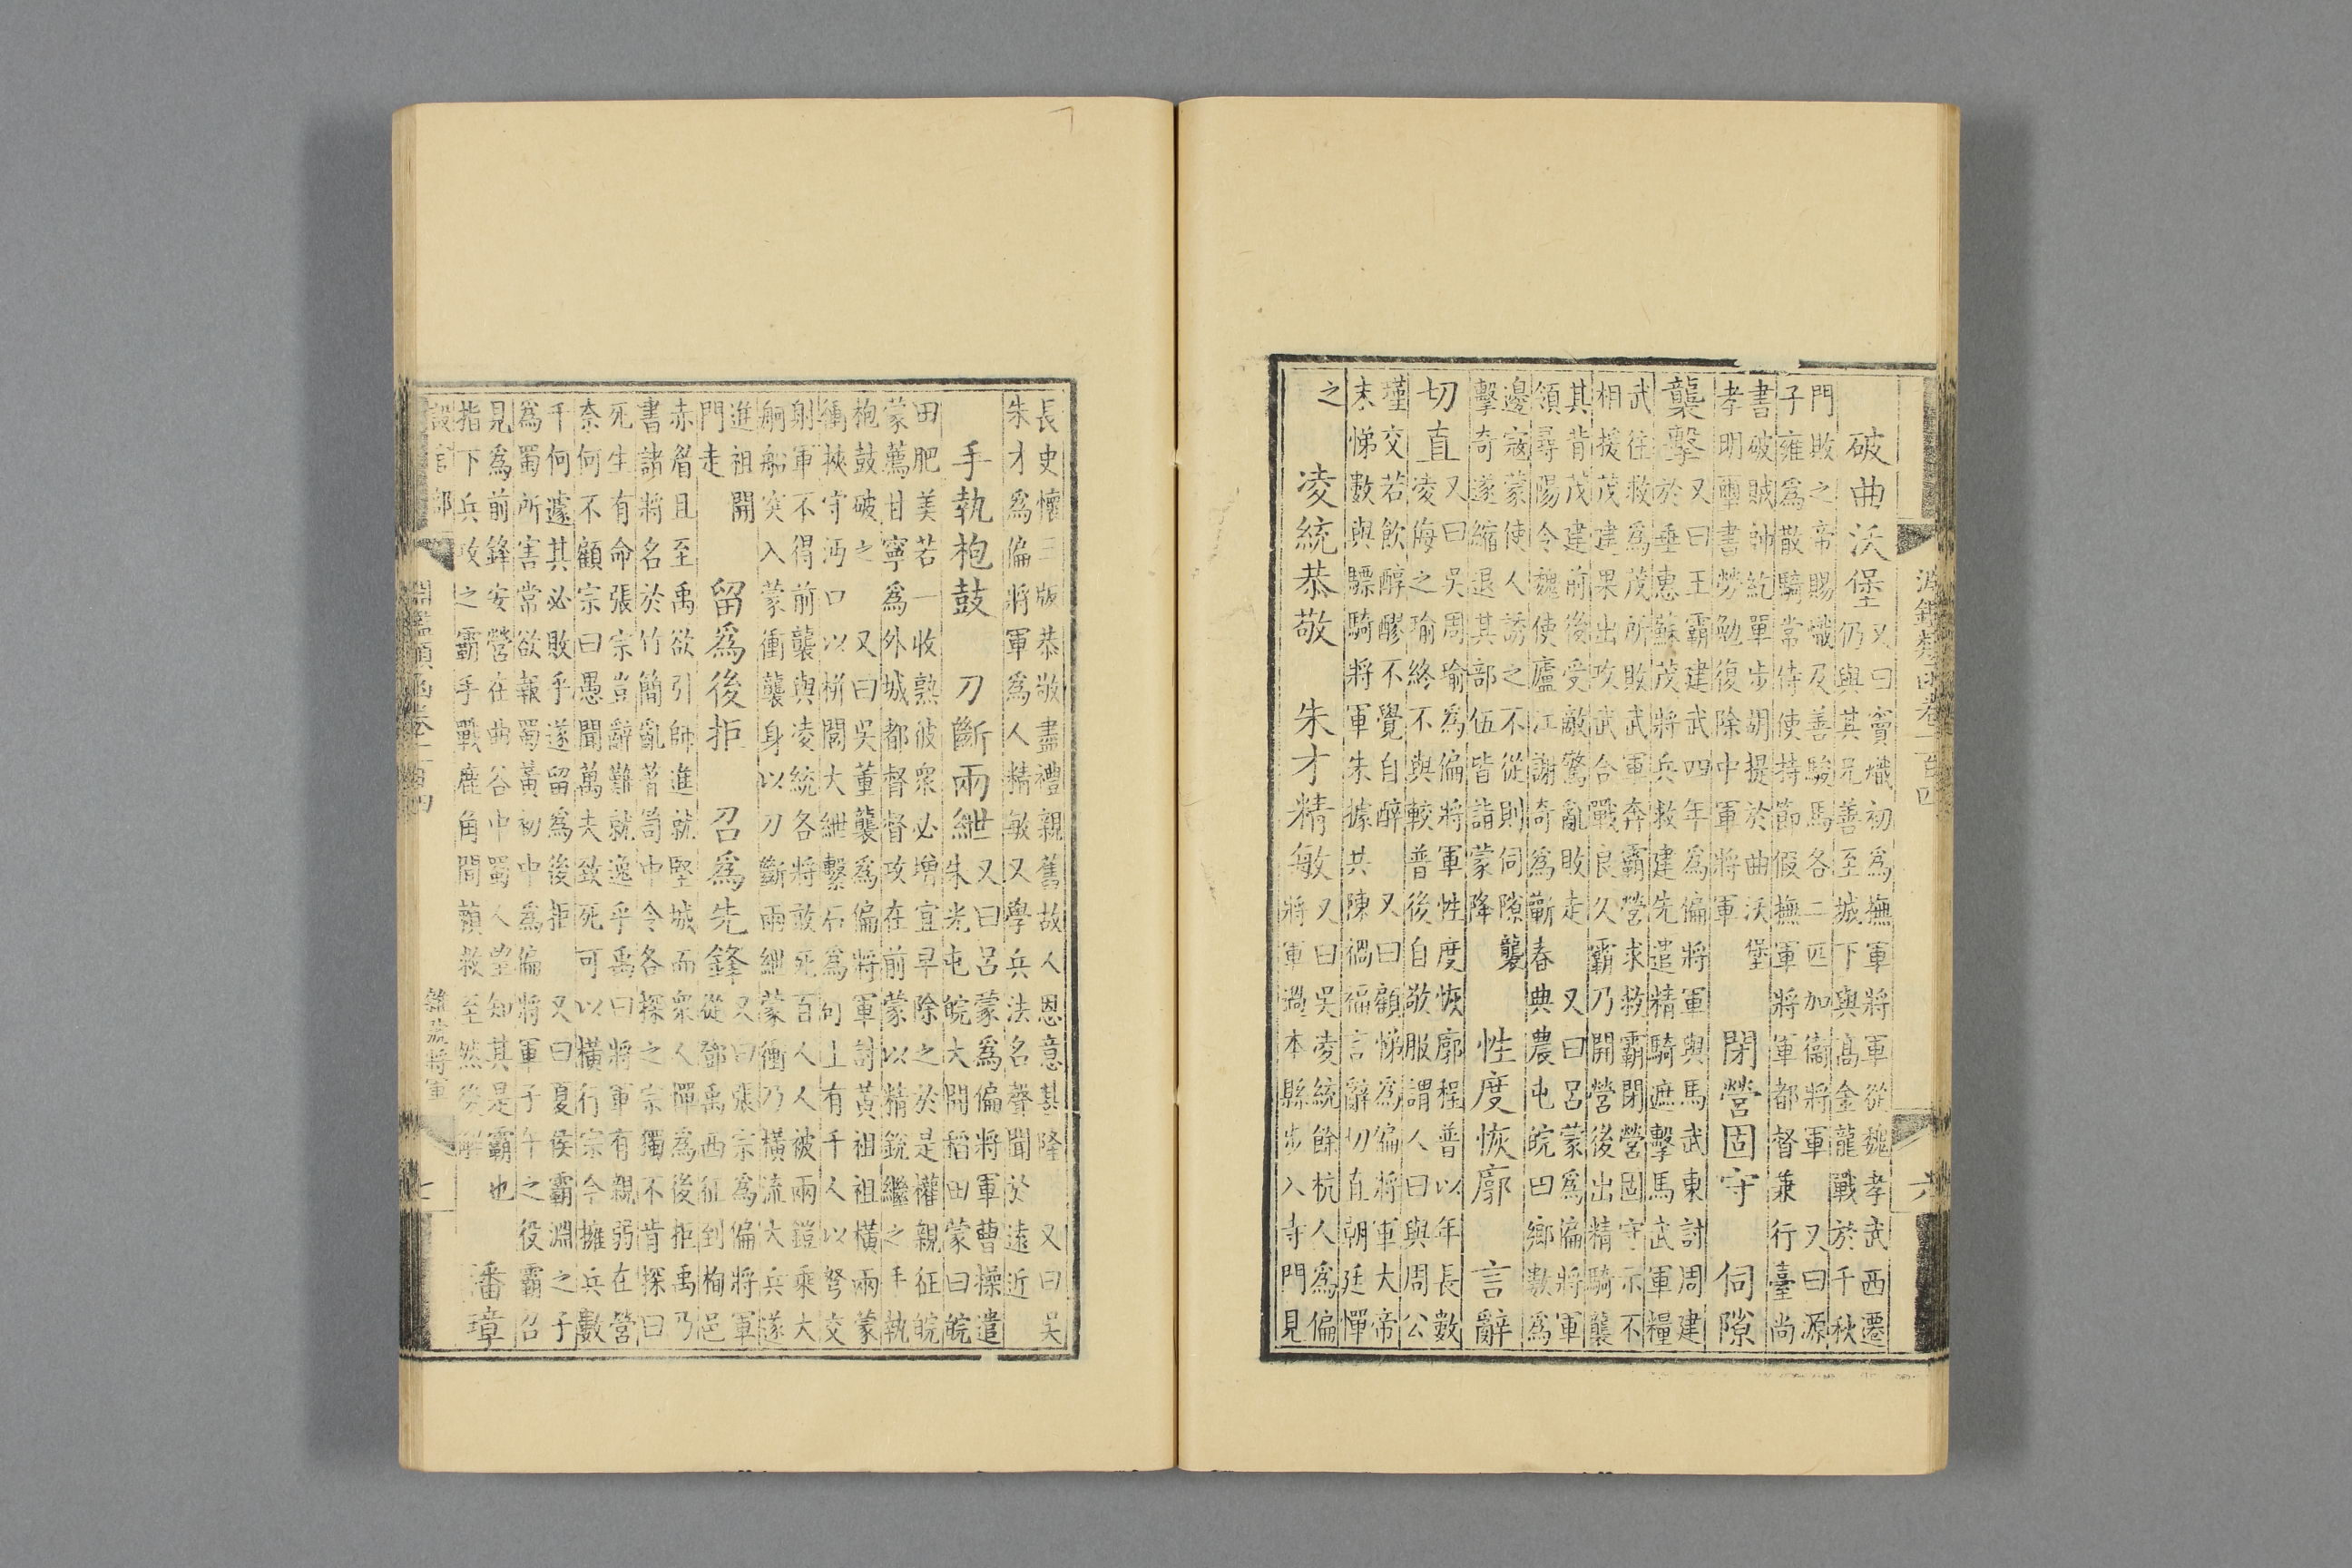 淵鑑類函卷一百四 六
破曲沃堡
又曰竇熾初為撫軍將軍從魏孝武西遷
仍與其兄善至城下與高金龍戰於千秋
門敗之帝賜熾及善駿馬各二匹加衛將軍 又曰源
子雍為散騎常侍使持節假撫軍將軍都督兼行臺尚
書破賊帥紇單步胡提於曲沃堡
孝明璽書勞勉復除中軍將軍
閉營固守 伺隙
襲擊
又曰王霸建武四年為偏將軍與馬武東討周建
於垂惠蘇茂將兵救建先遣精騎遮擊馬武軍糧
武往救為茂所敗武軍奔霸營求救霸閉營固守示不
相援茂建果出攻武合戰良久霸乃開營後出精騎襲
其背茂建前後受敵驚亂敗走 又曰呂蒙為偏將軍
領尋陽令魏使廬江謝奇為蘄春典農屯皖田鄉數為
邊寇蒙使人誘之不從則伺隙襲
擊奇遂縮退其部伍皆詣蒙降
性度恢廓 言辭
切直
又曰吳周瑜為偏將軍性度恢廓程普以年長數
凌侮之瑜終不與較普後自敬服謂人曰與周公
瑾交若飲醇醪不覺自醉 又曰顧悌為偏將軍大帝
末悌數與驃騎將軍朱據共陳禍福言辭切直朝廷憚
之
凌統恭敬 朱才精敏
又曰吳凌統餘杭人為偏
將軍過本縣步入寺門見
長史懷三版恭敬盡禮親舊故人恩意甚隆 又曰吳
朱才為偏將軍為人精敏又學兵法名聲聞於遠近
手執枹鼓 刀斷兩紲
又曰呂蒙為偏將軍曹操遣
朱光屯皖大開稻田蒙曰皖
田肥美若一收熟彼衆必增宜早除之於是權親征皖
蒙薦甘寧為外城都督督攻在前蒙以精銳繼之手執
枹鼓破之 又曰吳董襲為偏將軍討黃祖祖橫兩蒙
衝挾守沔口以栟閭大紲繫石為矴上有千人以弩交
射軍不得前襲與凌統各將敢死百人人被兩鎧乘大
舸船突入蒙衝襲身以刀斷兩紲蒙衝乃橫流大兵遂
進祖開
門走
留為後拒 召為先鋒
又曰張宗為偏將軍
從鄧禹西征到栒邑
赤眉且至禹欲引師進就堅城而衆人憚為後拒禹乃
書諸將名於竹簡亂著笥中令各探之宗獨不肯探曰
死生有命張宗豈辭難就逸乎禹曰將軍有親弱在營
柰何不顧宗曰愚聞萬夫致死可以橫行宗今擁兵數
千何遽其必敗乎遂留為後拒 又曰夏侯霸淵之子
為蜀所害常欲報蜀黃初中為偏將軍子午之役霸召
見為前鋒安營在曲谷中蜀人望知其是霸也
指下兵攻之霸手戰鹿角間賴救至然後解
潘璋
設官部 淵鑑類函卷一百四 雜號將軍 七